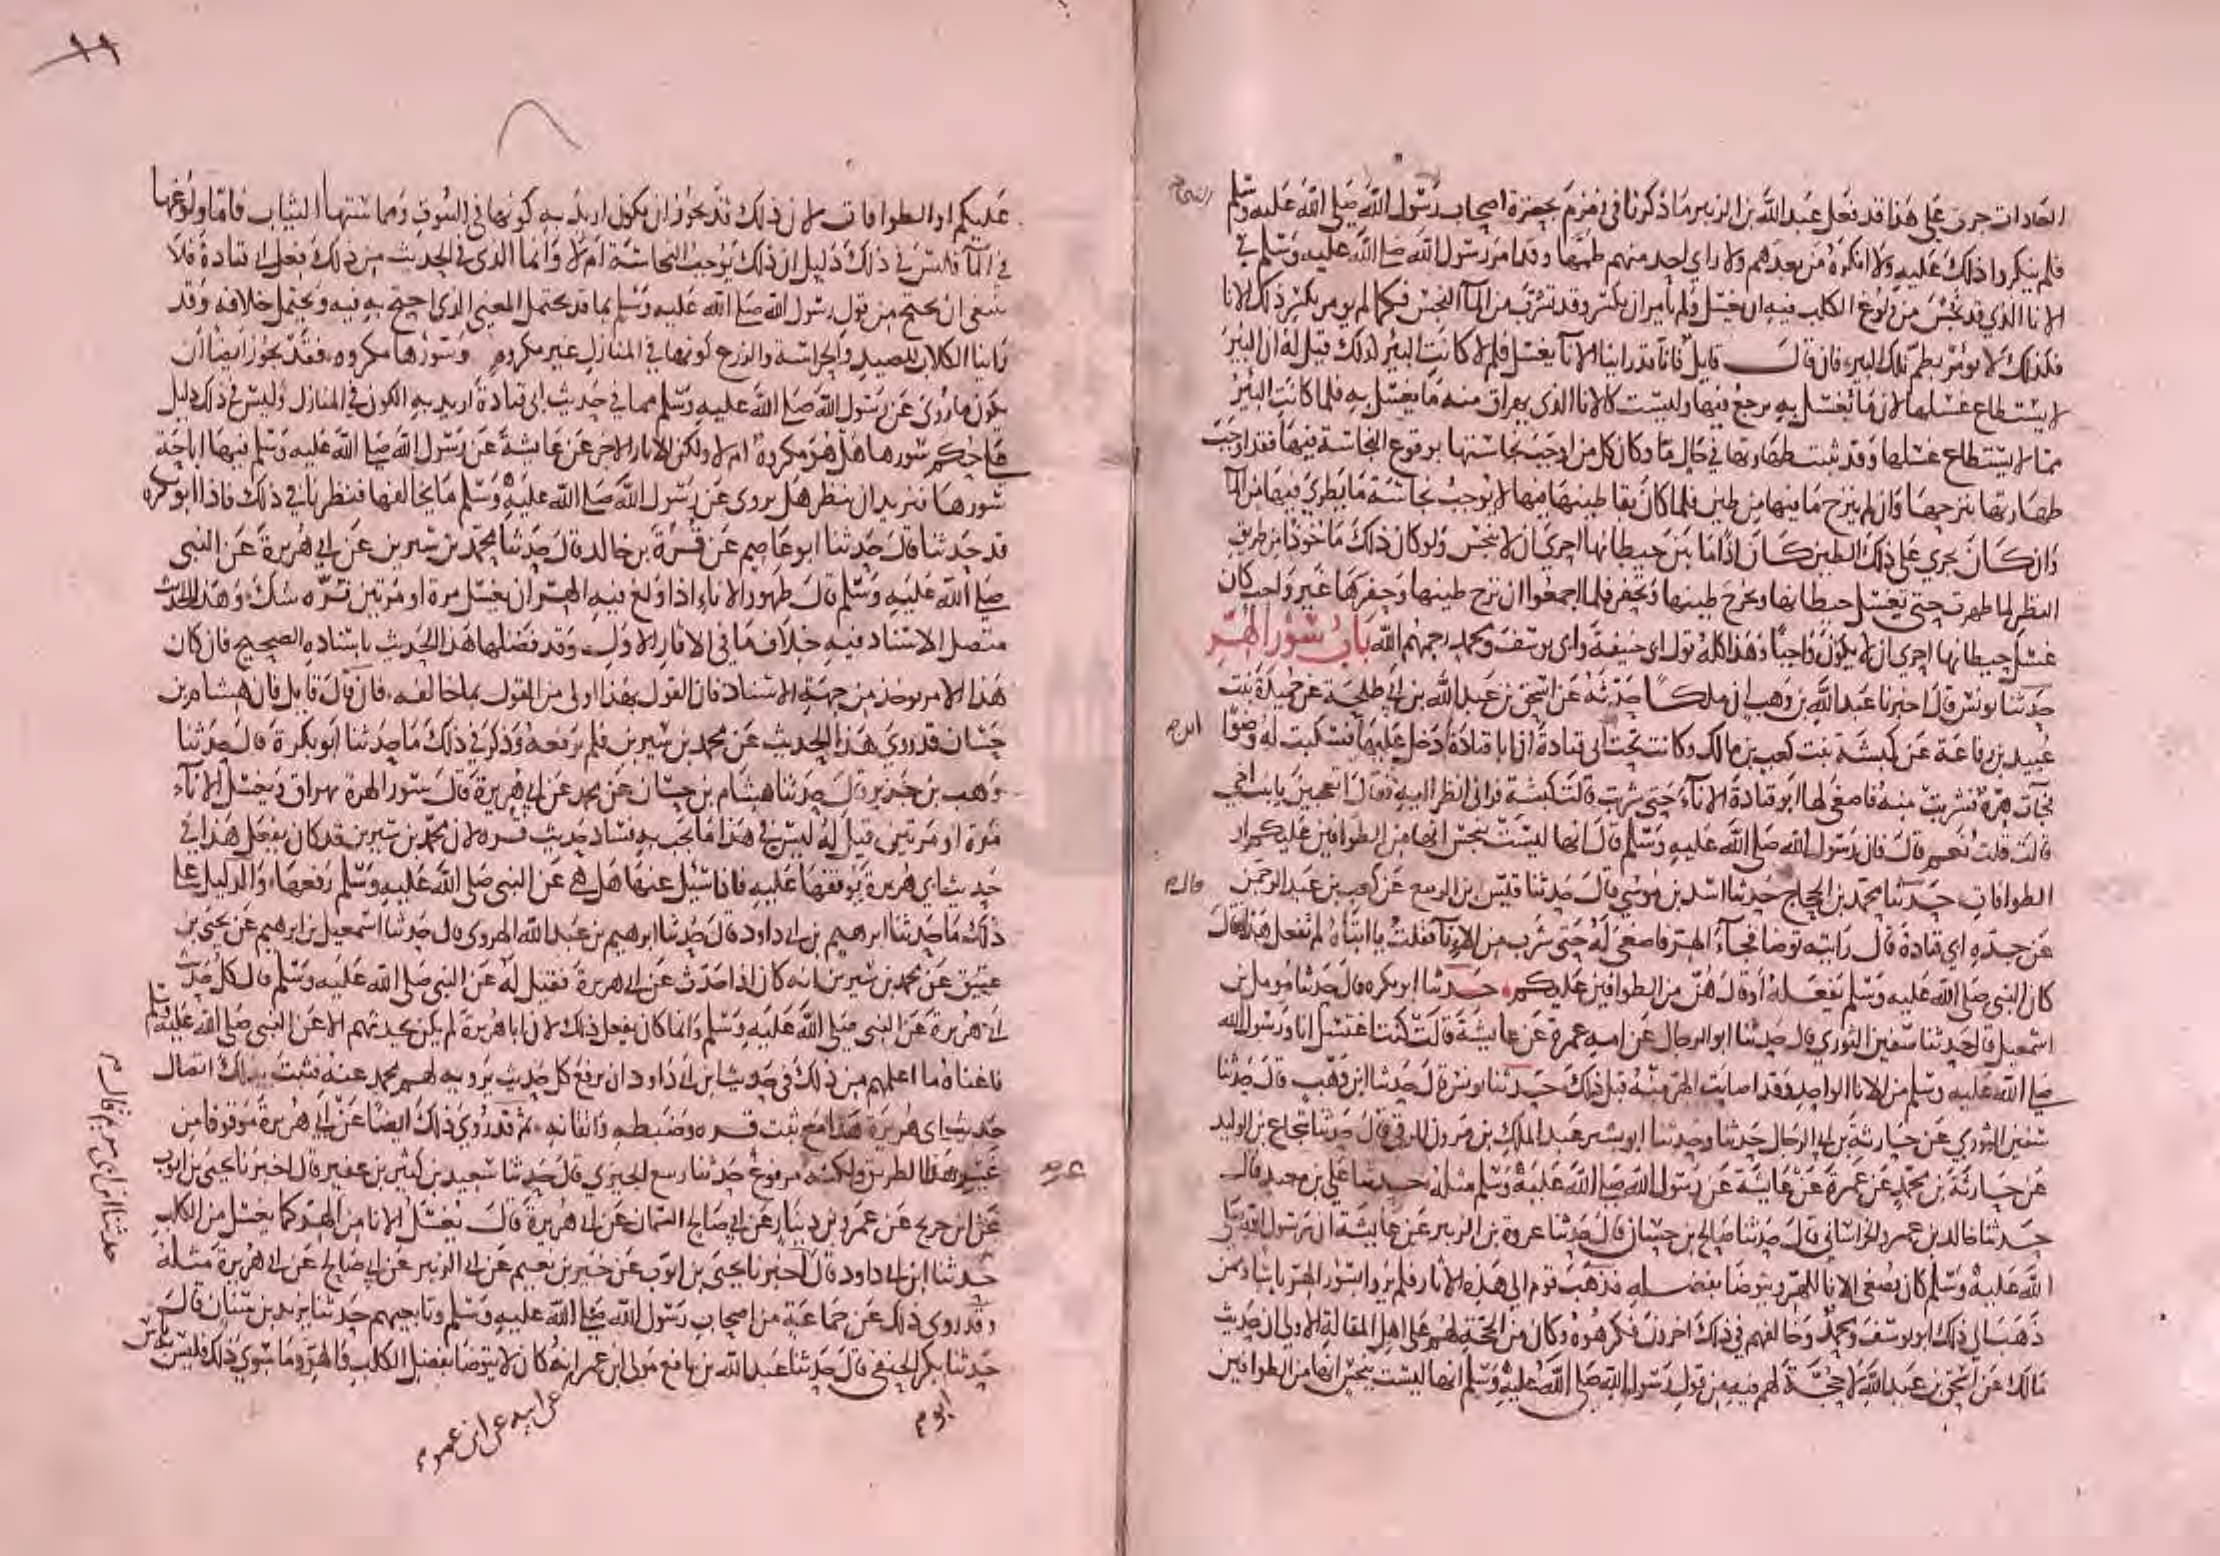 العادات جرى على هذا قد فعل عبد الله بن الزبير ما ذكرنا في زمزم بحضرة اصحاب رسول الله صلى الله عليه وسلم
فلم ينكروا ذلك عليه ولا انكره من بعدهم ولا راي احد منهم طمها وقد امر رسول الله صلى الله عليه وسلم في
الانا الذي قد نجس من ولوغ الكلب فيه ان يغسل ولم يامر ان يكسر وقد تشرب من المآ النجس فكما لم يومر بكسر ذلك الانا
فكذلك لا يؤمر بطم تلك البير فان قال قايل فانا قد راينا الانآ يغسل فلم لا كانت البئر كذلك قيل له ان البئر
لا يستطاع غسلها لان ما يغسل به يرجع فيها وليست كالانا الذي يهراق منه ما يغسل به فلما كانت البئر
مما لا يستطاع غسلها وقد ثبت طهارتها في حال ما وكان كل من اوجب نجاستها بوقوع النجاسة فيها فقد اوجب
طهارتها بنزحها وان لم ينزح ما فيها من طين فلما كان بقا طينها فيها لا يوجب نجاسة ما يطرى فيها من المآ
وان كان يجري على ذلك الطين كان اذا ما بين حيطانها احرى ان لا ينجس ولو كان ذلك ماخوذا من طريق
النظر لما طهرت حتى تغسل حيطانها ويخرج طينها وتحفر فلما اجمعوا ان نزح طينها وحفرها غير واجب كان
غسل حيطانها احرى ان لا يكون واجبا وهذا كله قول ابي حنيفة وابي يوسف ومحمد رحمهم الله باب سؤر الهر
حدثنا يونس قال اخبرنا عبد الله بن وهب ان ملكا حدثه عن اسحق بن عبد الله بن ابي طلحة عن حميدة بنت
عبيد بن رفاعة عن كبشة بنت كعب بن مالك وكانت تحت ابي قتادة ان ابا قتادة دخل عليها فسكبت له وضوا
فجآت هرة فشربت منه فاصغى لها ابو قتادة الانآء حتى شربت قالت كبشة فراني انظر اليه فقال اتعجبين يا بنت اخي
قالت قلت نعم قال فان رسول الله صلى الله عليه وسلم قال انها ليست بنجس انها من الطوافين عليكم او
الطوافات حدثنا محمد بن الحجاج حدثنا اسد بن موسي قال حدثنا قيس بن الربيع عن كعب بن عبد الرحمن
عن جده ابي قتادة قال رايته توضا فجآء الهر فاصغى له حتى شرب من الانآ فقلت يا ابتاه لم تفعل هذا فقال
كان النبي صلى الله عليه وسلم يفعله أو قال هن من الطوافين عليكم حدثنا ابو بكره قال حدثنا مومل بن
اسمعيل قال حدثنا سفين الثوري قال حدثنا ابو الرجال عن امه عمرة عن عايشة قالت كنت اغتسل انا ورسول الله
صلى الله عليه وسلم من الانا الواحد وقد اصابت الهر منه قبل ذلك حدثنا يونس قال حدثنا ابن وهب قال حدثنا
سفين الثوري عن حارثة بن ابي الرجال حدثنا وحدثنا ابو بشر عبد الملك بن مروان الرقي قال حدثنا شجاع بن الوليد
عن حارثة بن محمد عن عمرة عن عايشة عن رسول الله صلى الله عليه وسلم مثله حدثنا علي بن معبد قال
حدثنا خالد بن عمرو الخراساني قال حدثنا صالح بن حسان قال حدثنا عروة بن الزبير عن عايشة ان رسول الله صلى
الله عليه وسلم كان يصغى الانا للهر ويتوضا بفضله فذهب قوم الى هذه الاثار فلم يروا بسؤر الهر باسا وممن
ذهب الى ذلك ابو يوسف ومحمد وخالفهم في ذلك اخرون فكرهوه وكان من الحجة لهم على اهل المقالة الاولى ان حديث
مالك عن اسحق بن عبد الله لا حجة لهم فيه من قول رسول الله صلى الله عليه وسلم انها ليست بنجس انها من الطوافين
عليكم او الطوافات لان ذلك قد يجوز ان يكون اريد به كونها في البيوت ومماستها الثياب فاما ولوغها
في المآ فليس في ذلك دليل ان ذلك يوجب النجاسة ام لا وانما الذي في الحديث من ذلك فعل ابي قتادة فلا
ينبغى ان يحتج من قول رسول الله صلى الله عليه وسلم بما قد يحتمل المعنى الذي احتج به فيه ويحتمل خلافه وقد
راينا الكلاب للصيد والحراسة والزرع كونها في المنازل غير مكروه وسؤرها مكروه فقد يجوز ايضا ان
يكون ما روى عن رسول الله صلى الله عليه وسلم مما في حديث ابي قتادة اريد به الكون في المنازل وليس في ذلك دليل
على حكم سورها هل هو مكروه ام لا ولكن الاثار الاخر عن عايشة عن رسول الله صلى الله عليه وسلم فيها اباحة
سورها فنريد ان ننظر هل يروى عن رسول الله صلى الله عليه وسلم ما يخالفها فنظرنا في ذلك فاذا ابو بكره
قد حدثنا قال حدثنا ابو عاصم عن قرة بن خالد قال حدثنا محمد بن سيرين عن ابي هريرة عن النبي
صلى الله عليه وسلم قال طهور الاناء اذا ولغ فيه الهر ان يغسل مرة او مرتين قره شك وهذا الحديث
متصل الاسناد فيه خلاف ما في الاثار الاول وقد فضلها هذا الحديث باسناده الصحيح فان كان
هذا الامر يوخذ من جهة الاسناد فان القول بهذا اولى من القول بما خالفه فان قال قايل فان هشام بن
حسان قد روي هذا الحديث عن محمد بن سيرين فلم يرفعه وذكر في ذلك ما حدثنا ابو بكرة قال حدثنا
وهب بن جرير قال حدثنا هشام بن حسان عن محمد عن ابي هريرة قال سؤر الهرة يهراق ويغسل الانآء
مرة او مرتين قيل له ليس في هذا ما يجب به فساد حديث قره لان محمد بن سيرين قد كان يفعل هذا في
حديث ابي هريرة يوقفها عليه فاذا سئل عنها هل هي عن النبي صلى الله عليه وسلم رفعها والدليل على
ذلك ما حدثنا ابرهيم بن ابي داود قال حدثنا ابرهيم بن عبد الله الهروي قال حدثنا اسمعيل بن ابرهيم عن يحيى بن
عتيق عن محمد بن سيرين انه كان اذا حدث عن ابي هريرة فقيل له عن النبي صلى الله عليه وسلم قال كل حديث
ابي هريرة عن النبي صلى الله عليه وسلم وانما كان يفعل ذلك لان ابا هريرة لم يكن يحدثهم الا عن النبي صلى الله عليه وسلم
فاغناه ما اعلمهم من ذلك في حديث ابن ابي داود ان يرفع كل حديث يرويه لهم محمد عنه فثبت بذلك اتصال
حديث ابي هريرة هذا مع ثبت قره وضبطه واتقانه ثم قد روي ذلك ايضا عن ابي هريرة موقوفا من
غير هذا الطريق ولكنه مرفوع حدثنا ربيع الجيزي قال حدثنا سعيد بن كثير بن عفير قال اخبرنا يحيى بن ايوب
عن ابن جريج عن عمرو بن دينار عن ابي صالح السمان عن ابي هريرة قال يغسل الانا من الهر كما يغسل من الكلب
حدثنا ابن ابي داود قال اخبرنا يحيى بن ايوب عن خير بن نعيم عن ابي الزبير عن ابي صالح عن ابي هريرة مثله
وقد روى ذلك عن جماعة من اصحاب رسول الله صلى الله عليه وسلم وتابعيهم حدثنا يزيد بن سنان قال
حدثنا بكر الحنفي قال حدثنا عبد الله بن نافع مولى ابن عمر انه كان لا يتوضا بفضل الكلب والهر وما سوى ذلك فليس به باس
ابو
عن ابيه عن ابن عمر
حدثنا ابن ابي مريم قال